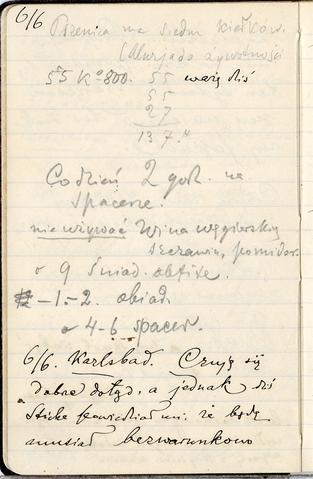 6/6 Pszenica ma siedm kiełków.
(Alurjada żywotności
55 Ko 800. 55 ważę dziś
55
27
137."
Codzień 2 godz. na
spacerze.
nie używać Wina węgierskiego
szczawiu, pomidor.
o 9 śniad. obfite.
–1.–2. obiad.
o 4–6 spacer.
6/6. Karlsbad. Czuję się
dobrze dotąd, a jednak dr
powiedział mi, że będę
musiał bezwarunkowo